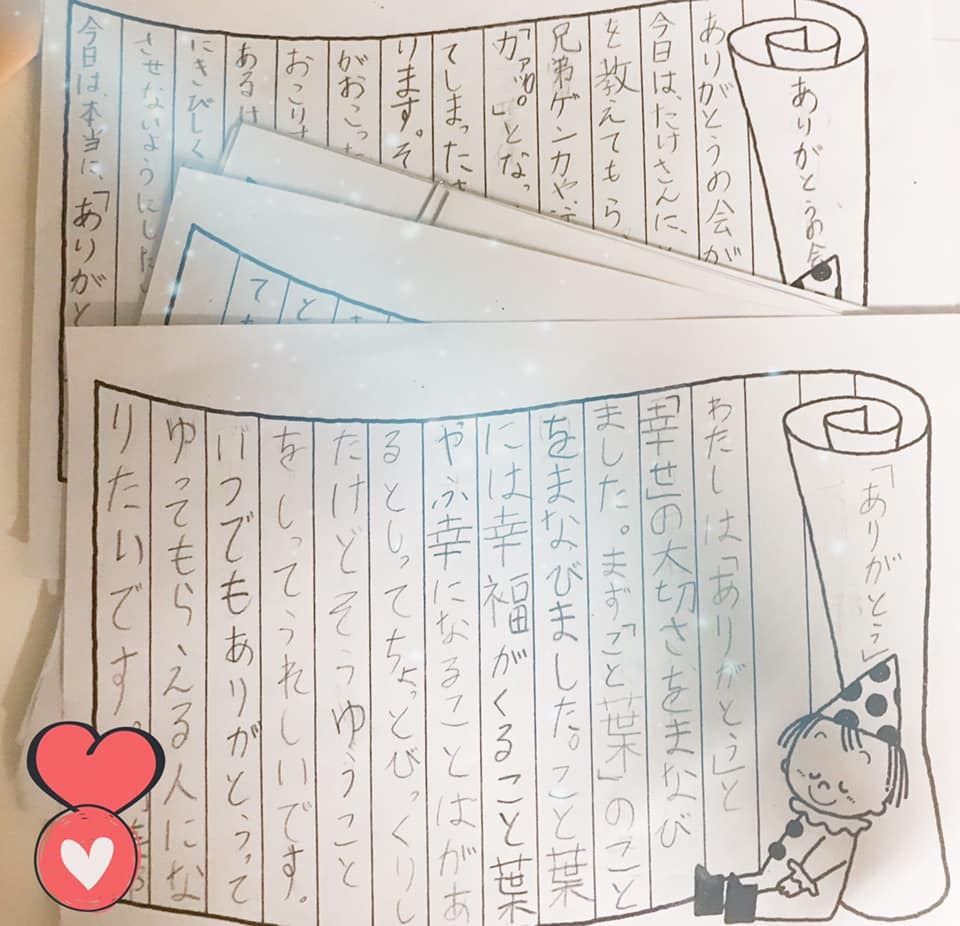 ありがとうの会
ありがとうの会が
今日は、たけさんに、
を教えてもら
兄弟ゲンカや
「カァッ。」となっ
てしまった
ります。そ
がおこっ
おこり
あるけ
にきびしく
させないようにした
今日は、本当に、「ありがと
と
て
「ありがとう」
わたしは「ありがとう」と
「幸せ」の大切さをまなび
ました。まず「こと葉」のこと
をまなびました。こと葉
には幸福がくること葉
やふ幸になることはがあ
るとしってちょっとびっくりし
たけどそうゆうこと
をしってうれしいです。
いつでもありがとうって
ゆってもらえる人にな
りたいです。